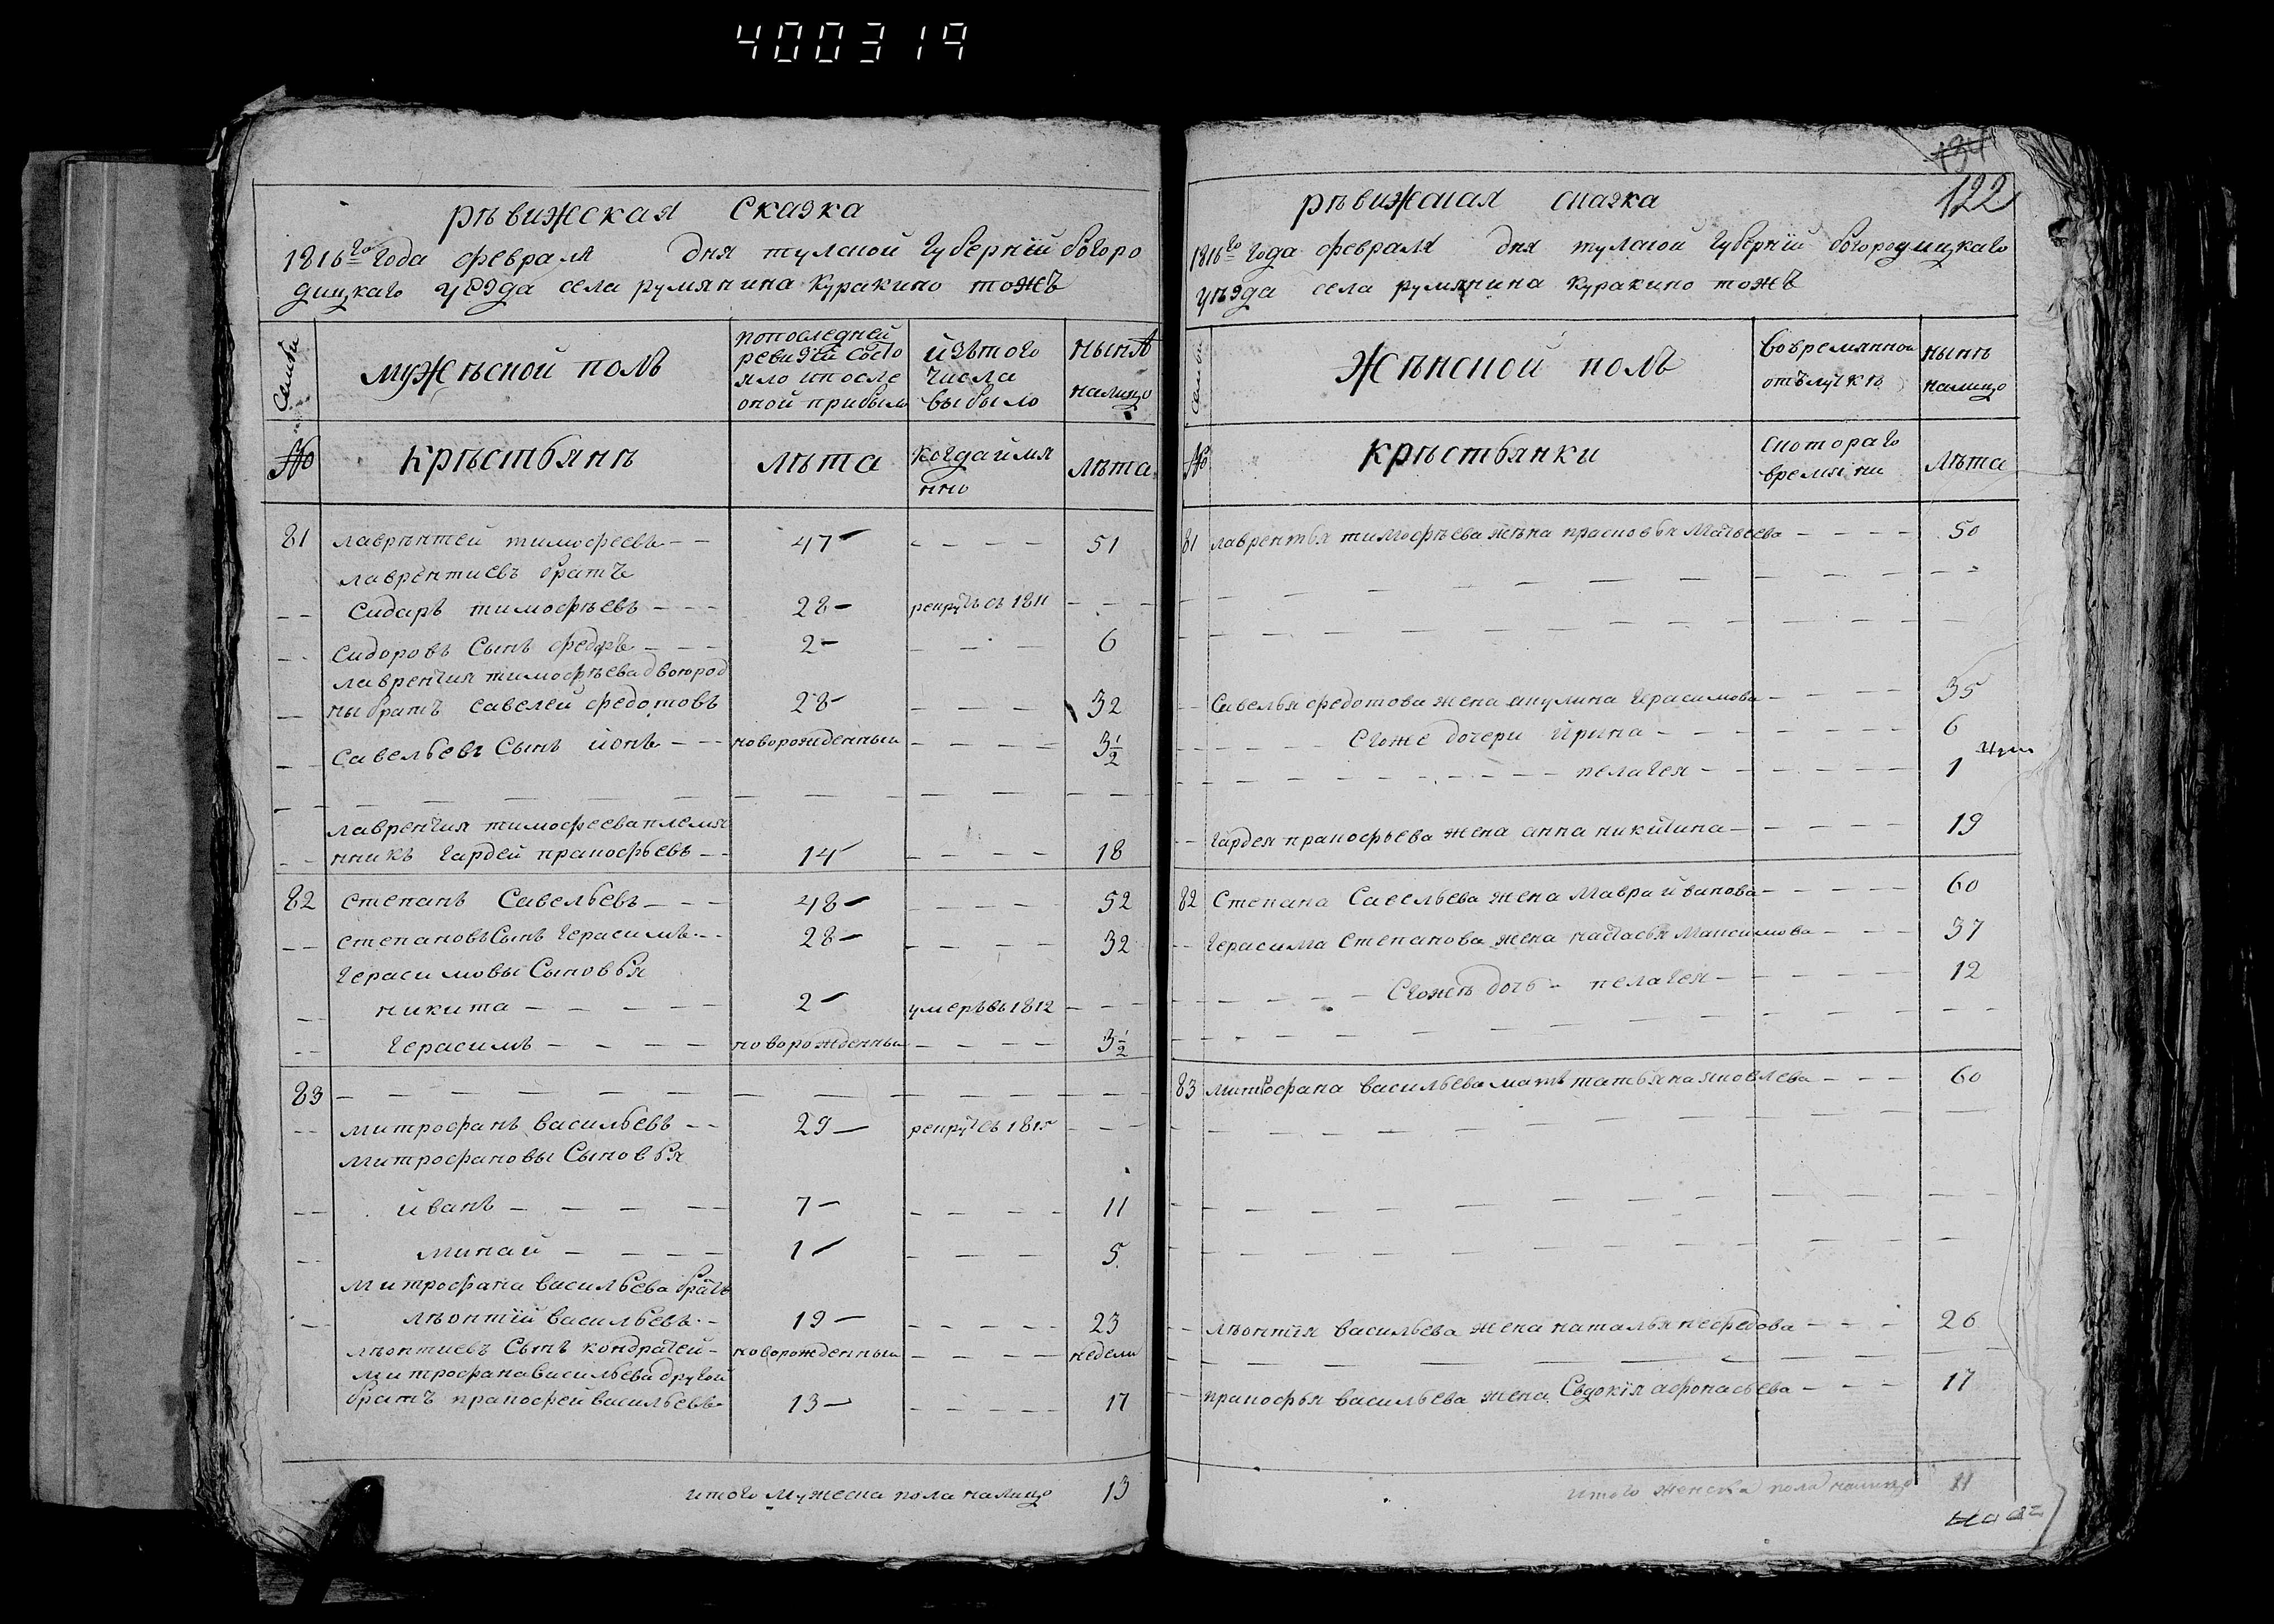 400319
рѣвижская сказка
1816го года февраля дня тулской губернїй богоро
дицкаго уезда села румянина куракино тожъ
семьи
мужѣской полъ
попоследней
ревизїй состо
яло ипосле
оной прибыло
йзътого
числа
выбыло
нынѣ
налицо
№
крѣстьянѣ
лѣта
когдаймя
нно
лѣта
81 лаврѣнтей тимофеевъ 47 51
лаврентиевъ братъ
Сидаръ тимофѣевъ 28 рекрутъ съ 1811
Сидоровъ Сынъ федръ 2 6
лаврентия тимофѣева двоюрод
ны братъ савелей федотовъ 28 32
Савельевъ Сынъ йонъ новорожденный 3 1/2
лаврентия тимофеева племя
нникъ гардей пракофьевъ 14 18
82 степанъ Савельевъ 48 52
степановъ Сынъ герасимъ 28 32
герасимовы Сыновья
никита 2 умеръ въ 1812
герасимъ новорожденны 3 1/2
83
митрофанъ васильевъ 29 рекрутъ съ 1815
митрофановы Сыновья
йванъ 7 11
минай 1 5
митрофана васильева братъ
лѣонтїй васильевъ 19 23
лѣонтиевъ Сынъ кондратей новорожденный недели
митрофана васильева другой
братъ пракофей васильевъ 13 17
итого мужеска пола налицо 13
134
122
рѣвижская сказка
1816го года февраля дня тулской губернїй богородицкаго
уѣзда села румянина куракино тожъ
семьи
Жѣнской полъ
вовремянной
отълучкѣ
нынѣ
налицо
№
крѣстьянки
скотораго
время ни
лѣта
81 лаврентья тимофѣева жѣна прасковья Матвеева 50
Савелья федотова жена акулина герасимова 35
Егоже дочери йрина 6
пелагея 1
гардея пракофьева жена анна никитина 19
82 Степана Савельева жена Мавра йванова 60
герасима степанова жена настасья Максимова 37
Егожъ дочь пелагея 12
83 митрофана васильева мать татьяна яковлева 60
лѣонтїя васильева жена наталья нефедова 26
пракофья васильева жена Евдокїя афонасьева 17
итого женска пола налицо 11